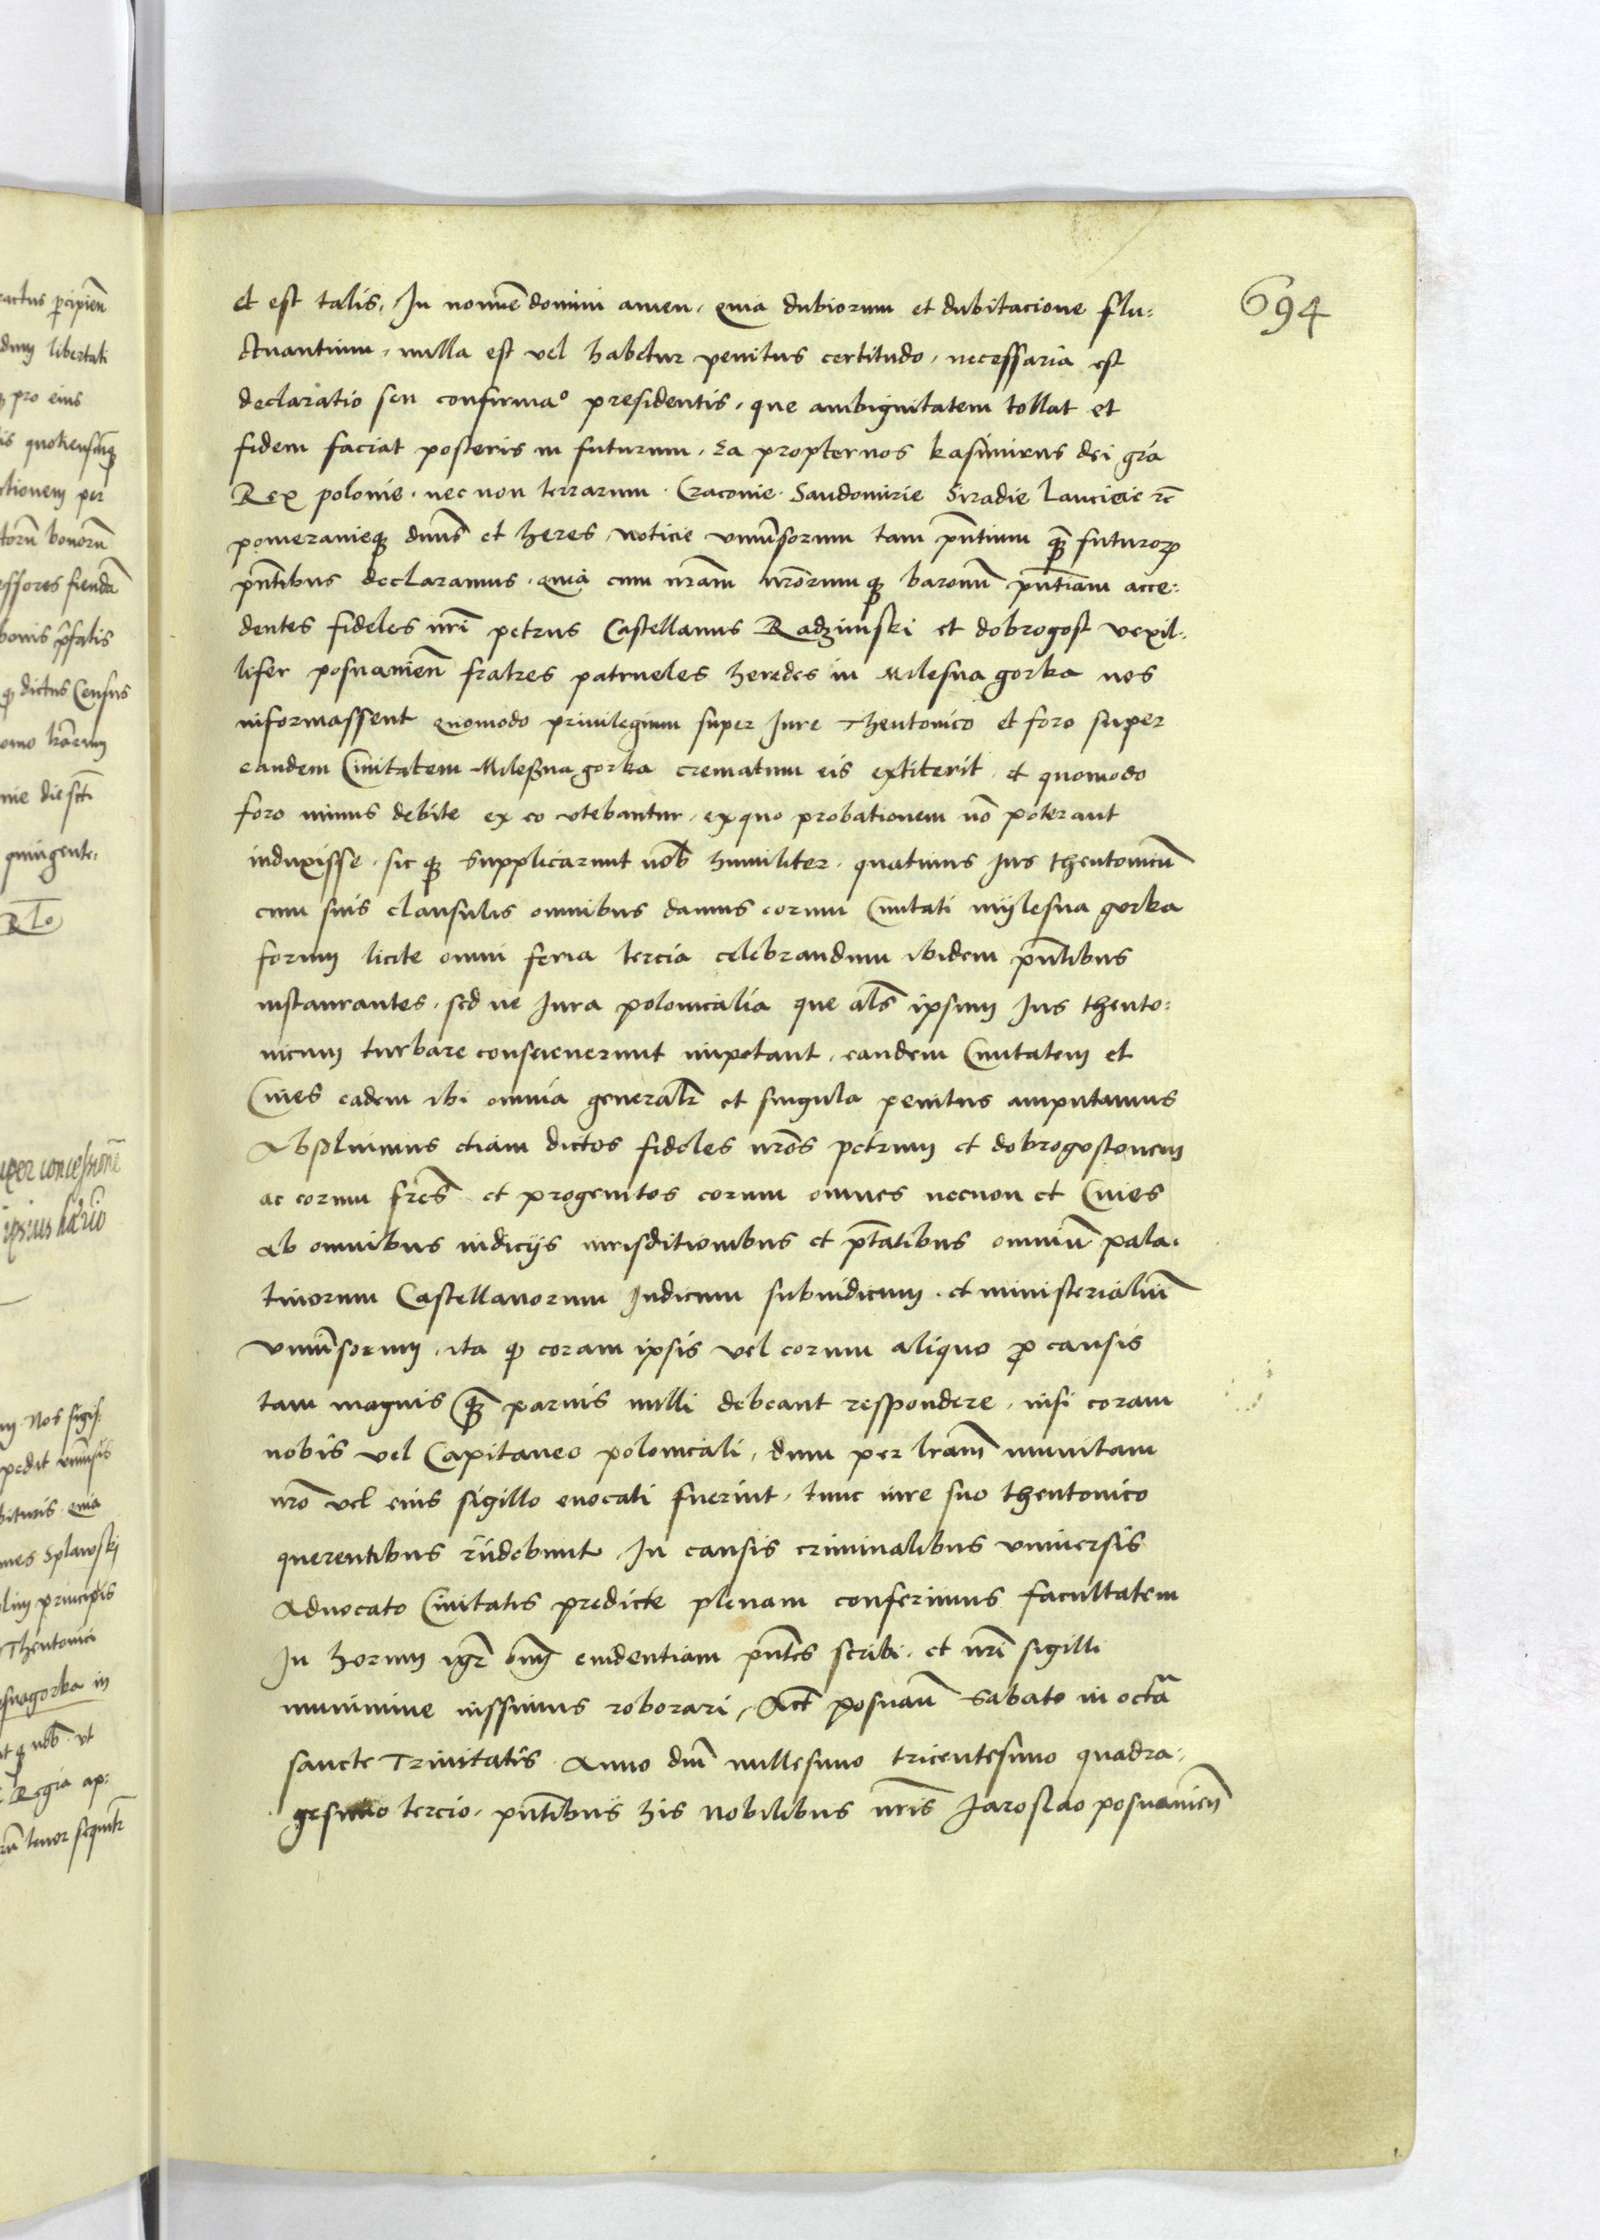 694
et est talis, In nomine domini amen, quia dubiorum et dubitacione flu:
ctuantium, nulla est vel habetur penitus certitudo, necessaria est
declaratio seu confirmao presidentis, que ambiguitatem tollat et
fidem faciat posteris in futurum, Ea propter nos kasimirus dei gra
Rex polonie, nec non terrarum Craconie Sandomirie Siradie Lancicie rc
pomeranieq dnns et heres, noticie vniuersorum tam pntium quam futuroru
pntibus declaramus, quia cum nram nrorumq baronu pntiam acce:
dentes fideles nri petrus Castellanus Radzimski et dobrogost vexil:
lifer posnanien fratres patrueles heredes in Milesna gorka nos
informassent quomodo priuilegium super Jure Theutonico et foro super
eandem Ciuitatem Milesna gorka crematum eis extiterit, et quomodo
foro minus debite ex eo vtebantur, ex quo probationem no poterant
induxisse, sic q supplicarunt nob humiliter, quatinus Jus theutonicu
cum suis clausulis omnibus damus eorum Ciuitati mijlesna gorka
forum licite omni feria tercia celebrandum ibidem pntibus
instaurantes, sed ne Jura polonicalia que als ipsum Jus theuto:
nicum turbare consueuerunt impetant, eandem Ciuitatem et
Ciues eadem ibi omnia generalr et singula penitus amputamus
Absoluimus etiam dictos fideles nros petrum et dobrogostonem
ac eorum fres et progenitos eorum omnes necnon et Ciues
ab omnibus iudicijs iurisditionibus et ptatibus omniu pala:
tinorum Castellanorum Judicum subiudicum, et ministerialiu
vniuersorum, ita q coram ipsis vel eorum aliquo pro causis
tam magnis quam paruis nulli debeant respondere, nisi coram
nobis vel Capitaneo polonicali, dum per lram munitam
nro vel eius sigillo euocati fuerint, tunc iure suo theutonico
querentibus rndebunt, In causis criminalibus vniuersis
Aduocato Ciuitatis predicte plenam conferimus facultatem
In horum igr omniu euidentiam pntes scribi, et nri sigilli
munimine iussimus roborari, Act posnan Sabato in octa
sancte Trinitatis Anno dni millesimo tricentesimo quadra:
gesimo tercio, pntibus his nobilibus nris Jaroslao posnanien